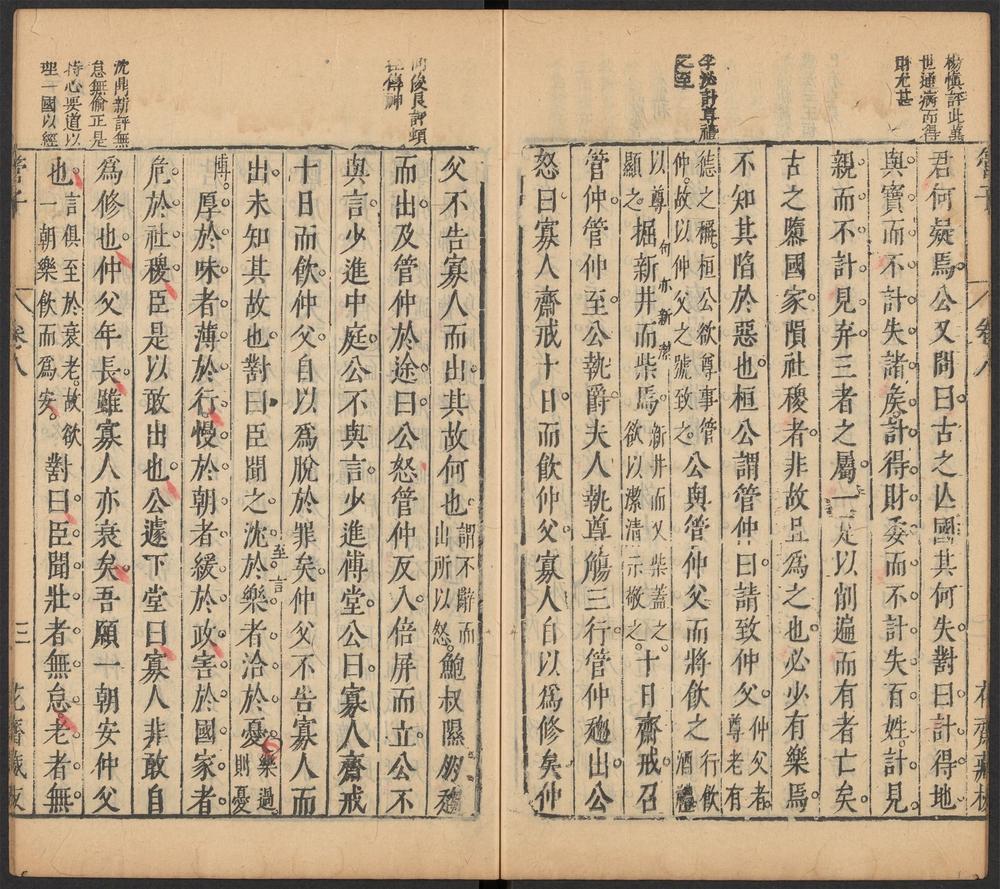 楊慎評此蓋
世通病而得
財尤甚
君何疑焉公又問曰古之亾國其何失對曰計得地
與寶而不計失諸矦計得財委而不計失百姓計見
親而不計見弃三者之屬一足以削遍而有者亡矣
古之隳國家隕社稷者非故且為之也必少有樂焉
不知其陷於惡也桓公謂管仲曰請致仲父仲父者尊老有
德之稱桓公欲尊事管仲故以仲父之號致之公與管仲父而將飲之行飲酒禮
以尊顯之掘新井而柴焉新井而又柴蓋之欲以潔清示敬之十日齋戒召
句亦新潔
管仲管仲至公執爵夫人執尊觴三行管仲趨出公
怒曰寡人齋戒十日而飲仲父寡人自以為修矣仲
管子
卷八
花齋藏板
父不告寡人而出其故何也謂不辭而出所以怒鮑叔隰朋趨
而出及管仲於途曰公怒管仲反入倍屏而立公不
與言少進中庭公不與言少進傅堂公曰寡人齋戒
十日而飲仲父自以為脫於罪矣仲父不告寡人而
出未知其故也對曰臣聞之沈於樂者洽於憂樂過則憂
至言
博厚於味者薄於行慢於朝者緩於政害於國家者
危於社稷臣是以敢出也公遽下堂曰寡人非敢自
為修也仲父年長雖寡人亦衰矣吾願一朝安仲父
也言俱至於衰老故欲一朝樂飲而為安對曰臣聞壯者無怠老者無
沈鼎新評無
怠無偷正是
持心要道以
理一國以經
管子
卷八
三
花齋藏板